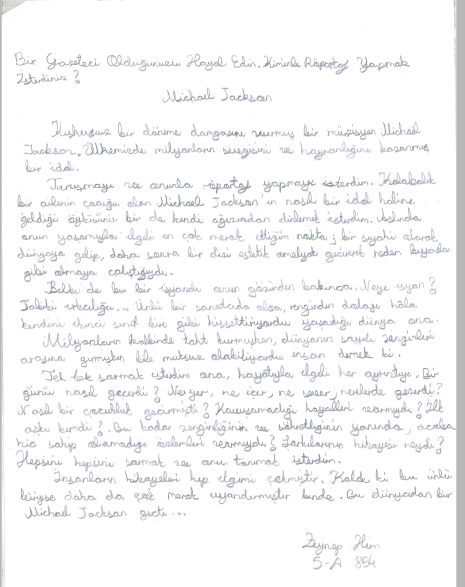 Bir Gazeteci Olduğunuzu Hayal Edin. Kiminle Röportaj Yapmak
İsterdiniz?
Michael Jackson
Kuşkusuz bir döneme damgasını vurmuş bir müzisyen Michael
Jackson. Ülkemizde milyonların sevgisini ve hayranlığını kazanmış
bir idol.
Tanışmayı ve onunla röportaj yapmayı isterdim. Kalabalık
bir ailenin çocuğu olan Michael Jackson'ın nasıl bir idol haline
geldiği öyküsünü bir de kendi ağzından dinlemek isterdim. Aslında
onun yaşamıyla ilgili en çok merak ettiğim nokta; bir siyahi olarak
dünyaya gelip, daha sonra bir dizi estetik ameliyat geçirerek neden beyazlar
gibi olmaya çalıştığıydı.
Belki de bu bir isyandı onun gözünden bakınca. Neye isyan?
Tabiki ırkçılığa... Ünlü bir sanatçıda olsa, renginden dolayı hâla
kendini ikinci sınıf biri gibi hissettiriyordu yaşadığı dünya ona.
Milyonların kalbinde taht kurmuşken, dünyanın sayılı zenginleri
arasına girmişken bile mutsuz olabiliyordu insan demek ki.
Tek tek sormak isterdim ona, hayatıyla ilgili her ayrıntıyı. Bir
günü nasıl geçerdi? Ne yer, ne içer, ne sever, nerelerde gezerdi?
Nasıl bir çocukluk geçirmişti? Kavuşamadığı hayalleri varmıydı? İlk
aşkı kimdi? Bu kadar zenginliğinin ve şöhretliğinin yanında, acaba
hiç sahip olamadığı özlemleri varmıydı? Şarkılarının hikayesi neydi?
Hepsini hepsini sormak ve onu tanımak isterdim.
İnsanların hikayeleri hep ilgimi çekmiştir. Kaldı ki bu ünlü
kişiyse daha da çok merak uyandırmıştır bende. Bu dünyadan bir
Michael Jackson geçti...
Zeynep
5-A 854